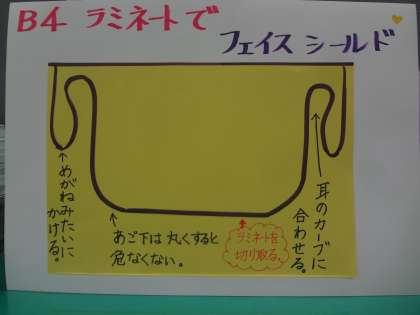 B4 ラミネートで
フェイス シールド
↑めがねみたいに
かける。
あご下は 丸くすると
危なくない。
ラミネートを
切り取る。
耳のカーブに
合わせる。